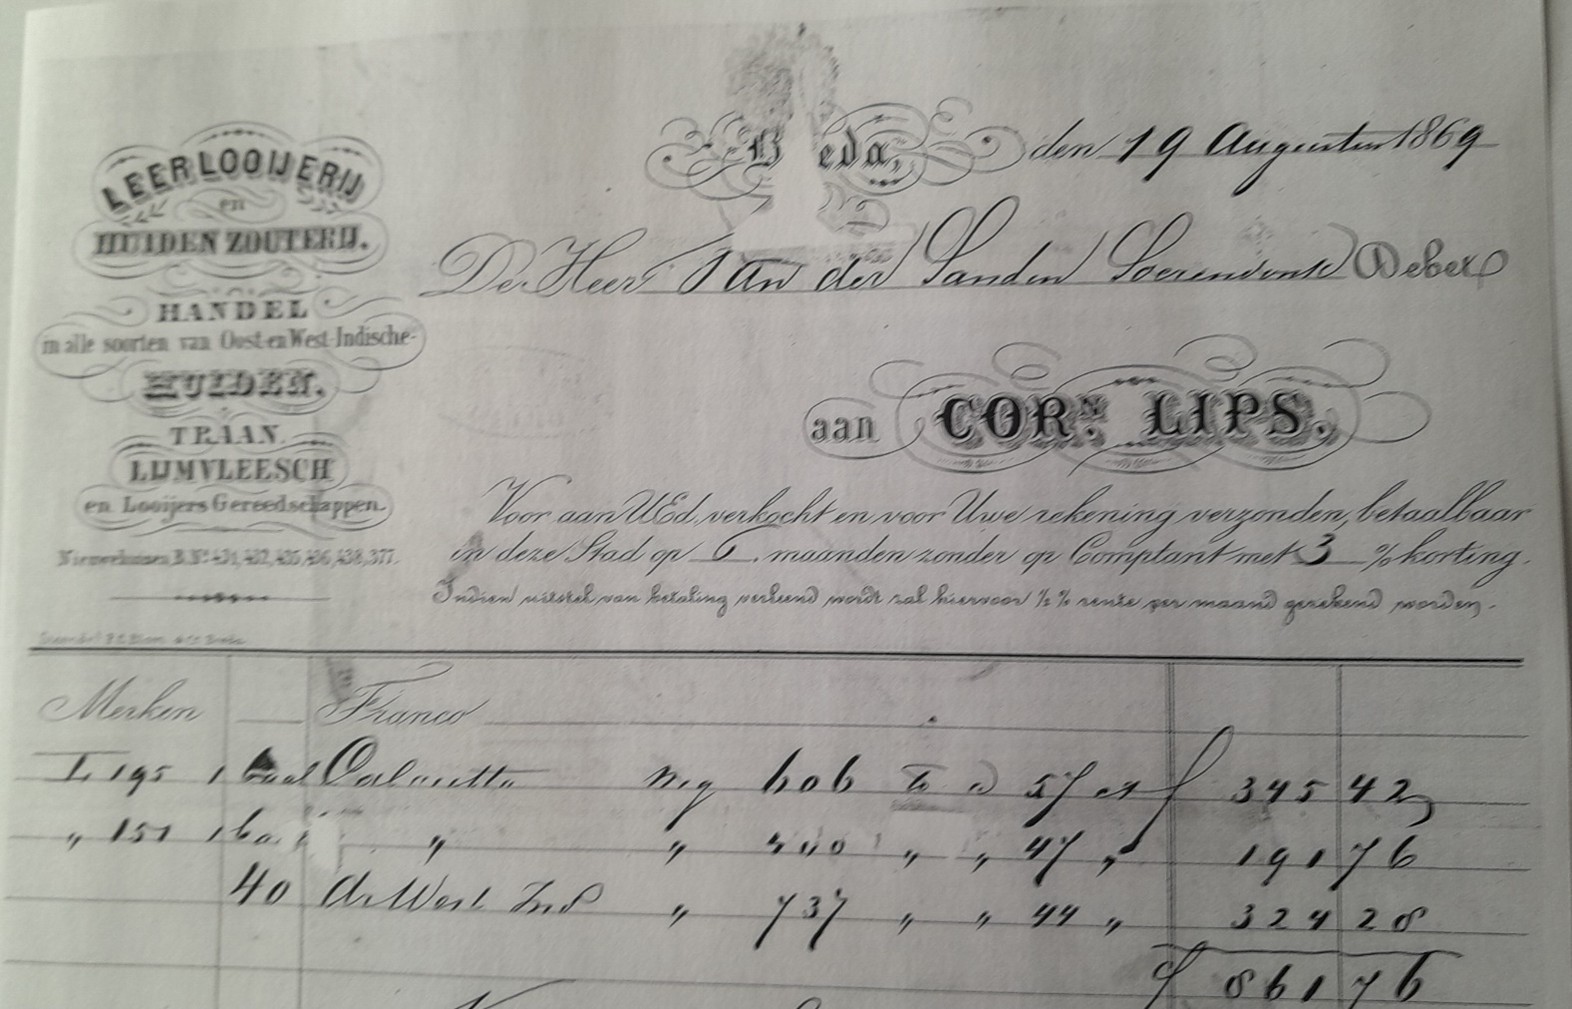 LEERLOOIJERIJ
en
HUIDEN ZOUTERIJ.
HANDEL
in alle soorten van Oost-en West-Indische-
HUIDEN.
TRAAN
LIJMVLEESCH
en Looijers Gereedschappen.
Nieuwehuizen, B. Nos. 431, 432, 435, 436, 438, 377.
Breda, den 19 Augustus 1869
De Heer Van der Sanden Soerendonk Debet
aan CORNs. LIPS.
Voor aan UEd. verkocht en voor Uwe rekening verzonden, betaalbaar
in deze Stad op maanden zonder op Comptant met 3 % korting.
Indien uitstel van betaling verleend wordt zal hiervoor ½ % rente per maand gerekend worden.
Merken Franco
L 195 1 baal Calcutta Weg 606 à 57 ct f 345 42
„ 151 1 ba „ „ „ „ 47 „ 191 76
40 dr West Ind „ 737 „ „ 44 „ 324 28
f 861 76